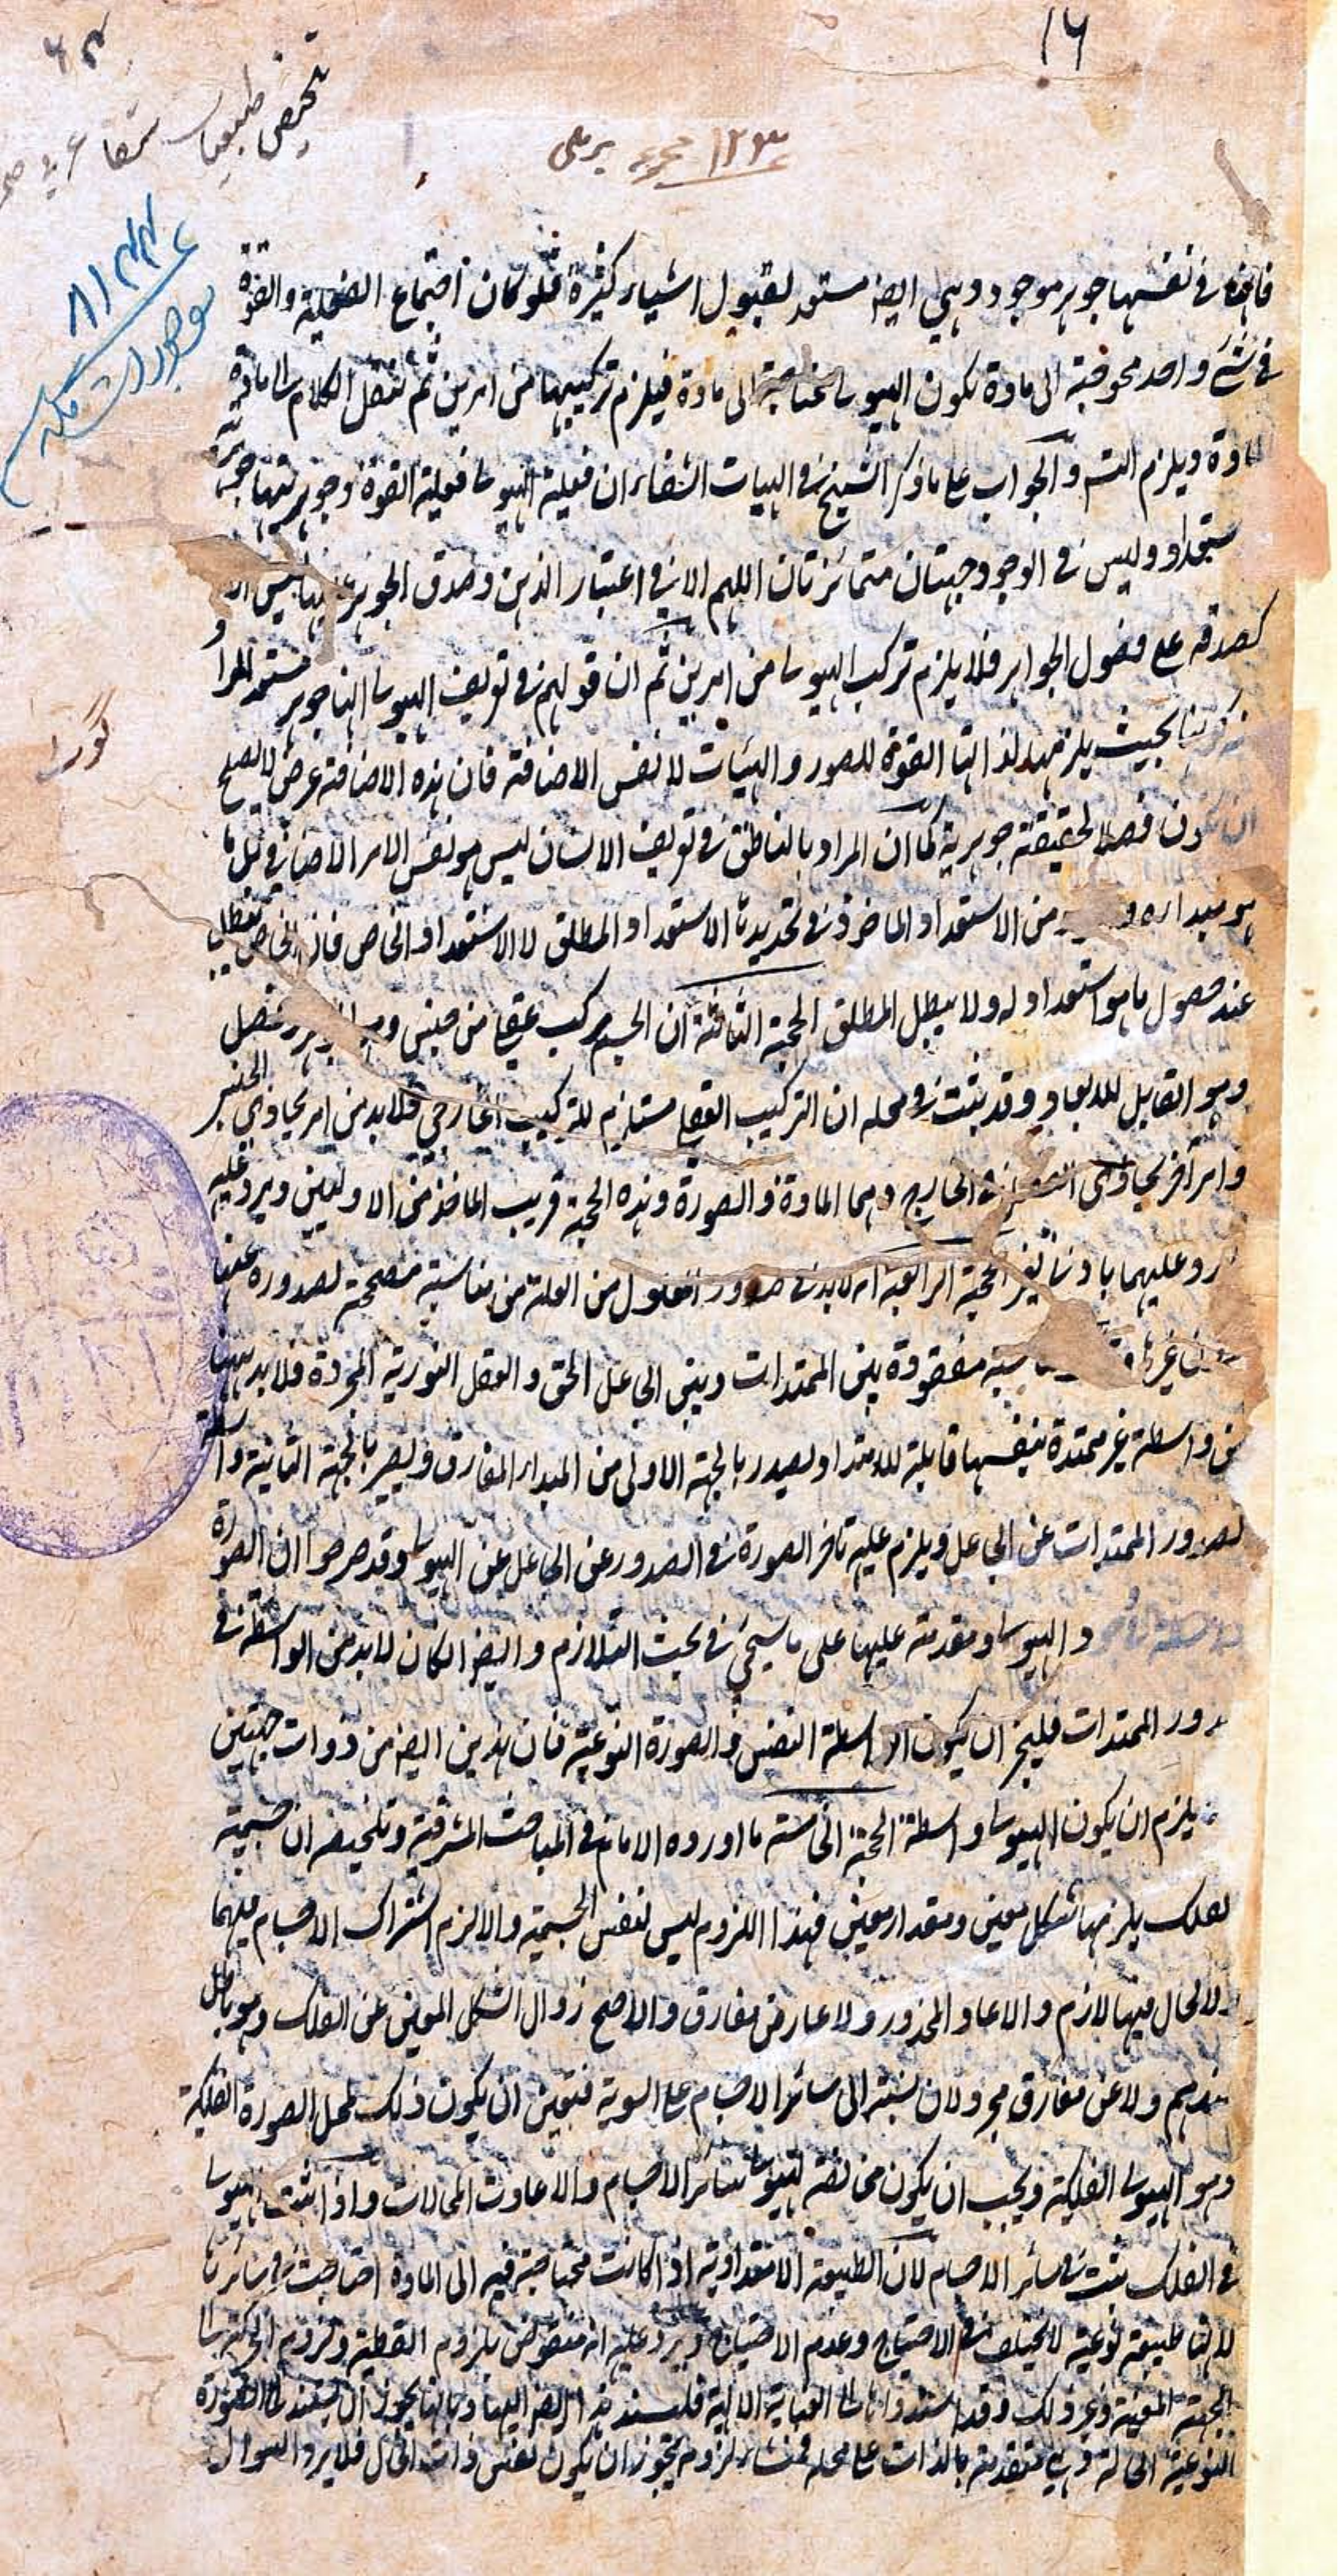 ١٦
٦٢
تلخيص طبيعيات شفا عربية
١٢٣٤ مجموعه بريلى
٨١٢٢
موجودات
فانها فى نفسها جوهر موجود وهى ايضا مستعد لقبول اشياء كثيرة فلو كان اجتماع الفعلية والقوة
فى شئ واحد محوجة الى مادة يكون الهيولى محتاجة الى مادة فيلزم تركيبها من امرين ثم ننقل الكلام الى مادة
المادة ويلزم التسـ والجواب على ما ذكر الشيخ فى الهيات الشفاء ان فعلية الهيولى فعلية القوة وجوهريتها جوهرية
ستعداد وليس فى الوجود جهتان متمائزتان اللهم الا فى اعتبار الذهن وصدق الجوهر عليها ليس الا
كصدقه على فصول الجواهر فلا يلزم تركب الهيولى من امرين ثم ان قولهم فى تعريف الهيولى انها جوهر مستعد المراد
كونها بحيث يلزمها لذاتها القوة للصور والهيئات لا نفس الاضافة فان هذه الاضافة عرض لا يصلح
ان تكون فصلا لحقيقة جوهرية كما ان المراد بالناطق فى تعريف الانسان ليس هو نفس الامر الاضافى بل ما
هو مبداره و من الاستعداد الماخوذ فى تحديدها الاستعداد المطلق لا الاستعداد الخاص فان الخاص يبطل
عند حصول ما هو استعداد له ولا يبطل المطلق الحجة الثالثة ان الجسم مركب عقلى من جنس وهو الجوهر وفصل
وهو القابل للابعاد وقد بثبت فى محله ان التركيب العقلى مستلزم للتركيب الخارجى فلا بد من امر يحاذى الجنس
وامر آخر يحاذى الفصل فى الخارج وهما المادة والصورة وهذه الحجة قريب الماخذ من الاوليين ويرد عليه
ما يرد عليهما بادنى تغير الحجة الرابعة انه لا بد فى صدور المعلول من العلة من مناسبة مصححة لصدوره عنها
دون غيرها مناسبة مفقودة بين الممتدات وبين الجاعل الحق والعقل النورية المجردة فلا بد ههنا
من واسطة غير ممتدة بنفسها قابلة للامتداد يصدر بالجهة الاولى من المبدأ المفارق ويصير بالجهة الثانية واسطة
لصدور الممتدات عن الجاعل ويلزم عليه تاخر الصورة فى الصدور عن الجاعل عن الهيولى وقد صرحوا ان الصورة
والهيولى ومقدمة عليها على ما سيجئ فى بحث التلازم وايضا ان كان لا بد من الواسطة فى
صدور الممتدات فليجز ان يكون الواسطة النفس والصورة النوعية فان هذين ايضا من ذوات جهتين
يلزم ان يكون الهيولى واسطة الحجة الخامسة ما اورده الامام فى المباحث المشرقية وتلخيصه ان جسمية
الفلك يلزمها شكل معين ومقدار معين فهذا اللزوم ليس لنفس الجسمية والا لزم اشتراك الاجسام فيهما
ولا لحال فيها لازم والا عاد المحذور ولا عارض مفارق والا صح زوال الشكل المعين عن الفلك وهو باطل
عندهم ولا عن مفارق مجرد لان نسبته الى سائر الاجسام على السوية فتعين ان يكون ذلك لمحل الصورة الفلكية
وهو الهيولى الفلكية ويجب ان يكون مخالفة لهيولى سائر الاجسام والا عادت المحالات واذا ثبت الهيولى
فى الفلك ثبت فى سائر الاجسام لان الطبيعة الامتدادية اذا كانت محتاجة فيه الى المادة احتاجت فى سائرها
لانها طبيعة نوعية لا تختلف فى الاحتياج وعدم الاحتياج ويرد عليه انه منقوض بلزوم القطبة ولزوم الحركة الى
الجهة المعينة وغير ذلك وقد اسندوها الى العناية الالهية فليسند هذا ايضا اليها وبانها يجوز ان يستند الى الصورة
النوعية الحالة وهى متقدمة بالذات على محله فمنشاء لزومه يجوز ان يكون نفس ذات الحال فلا يرد السوال